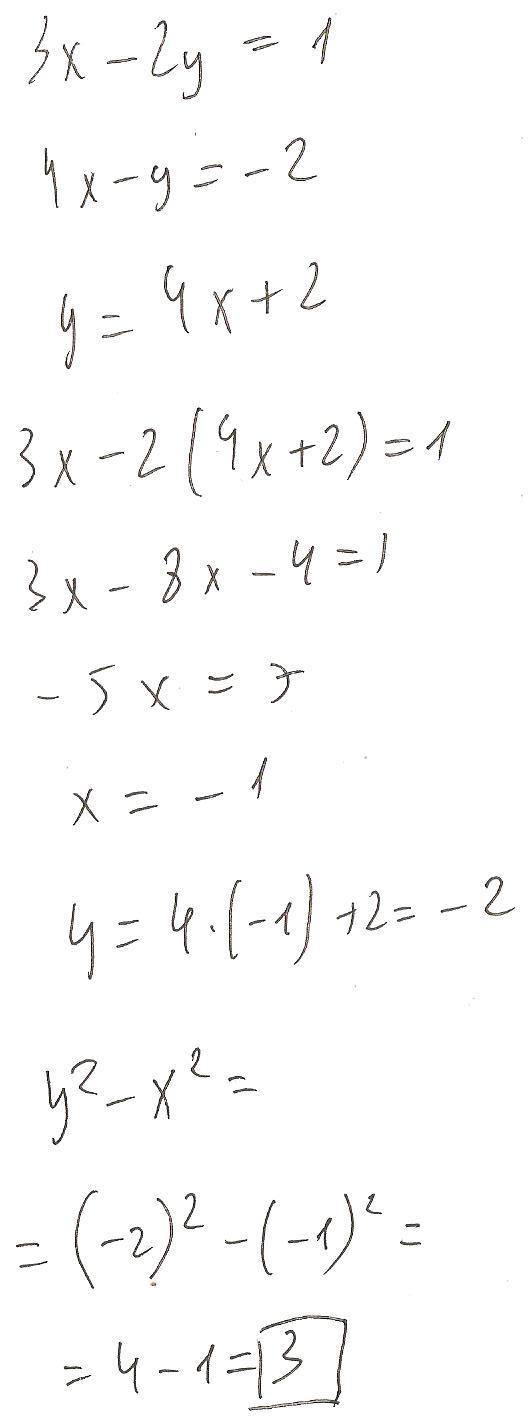 3x - 2y = 1
4x - y = -2
y = 4x + 2
3x - 2(4x+2) = 1
3x - 8x - 4 = 1
-5x = 5
x = -1
y = 4·(-1) + 2 = -2
y² - x² =
= (-2)² - (-1)² =
= 4 - 1 = 3